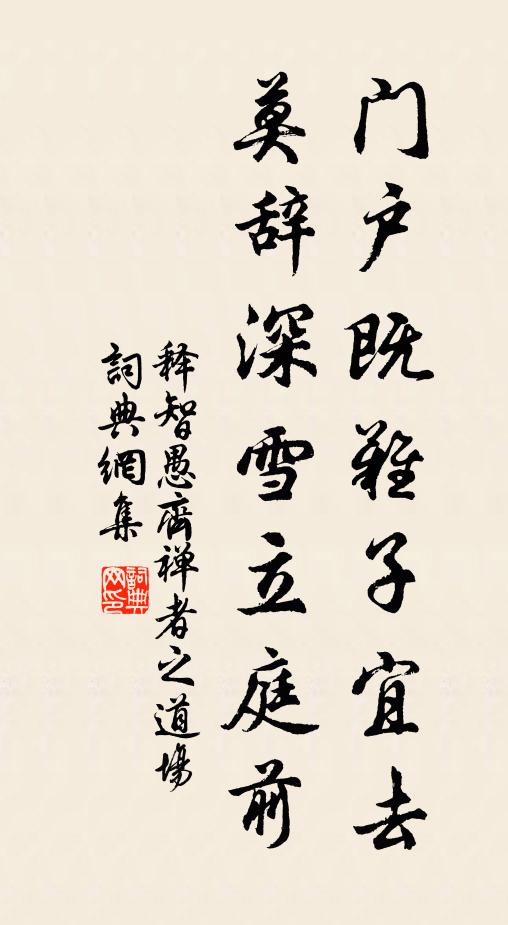 门户既难子宜去
莫辞深雪立庭前
释智愚齊禅者之道場
詞典網集
詞典网印